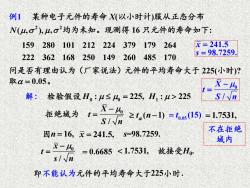 例1 某种电子元件的寿命X(以小时计)服从正态分布
N(μ,σ²),μ,σ²均为未知。现测得16只元件的寿命如下:
159 280 101 212 224 379 179 264
222 362 168 250 149 260 485 170
x̄ = 241.5
s = 98.7259.
问是否有理由认为(厂家说法)元件的平均寿命大于225(小时)?
取α=0.05。
t = (X̄ − μ₀) / (S / √n)
解: 检验假设H₀ : μ ≤ μ₀ = 225, H₁ : μ > 225
拒绝域为 t = (X̄ − μ₀) / (S / √n) ≥ tα(n−1) = t₀.₀₅(15) = 1.7531,
因n=16, x̄ = 241.5, s=98.7259.
不在拒绝域内
t = (x̄ − μ₀) / (s / √n) = 0.6685 < 1.7531, 故接受H₀.
即不能认为元件的平均寿命大于225小时.